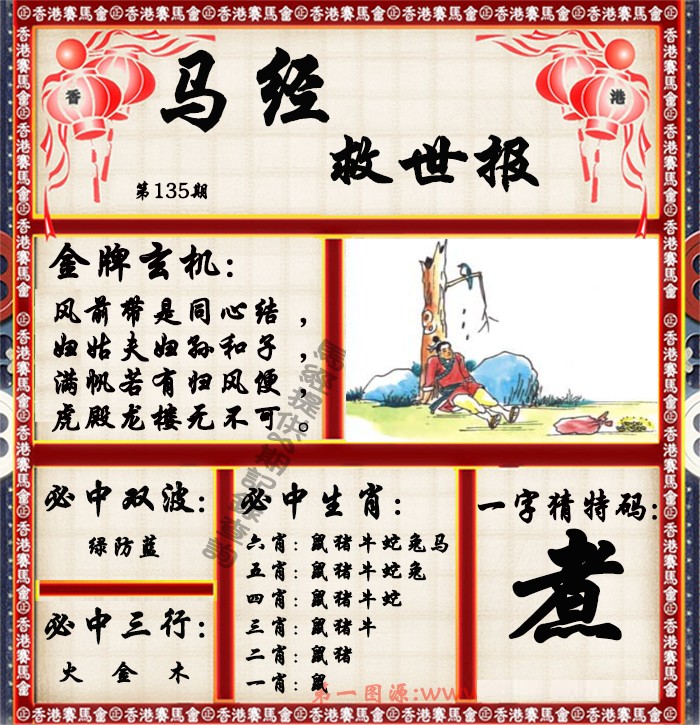 香港賽馬會
香
港
马经
救世报
第135期
金牌玄机:
风前带是同心结，
妇姑夫妇孙和子，
满帆若有归风便，
虎殿龙楼无不可。
必中双波:
绿防蓝
必中三行:
火 金 木
必中生肖:
六肖: 鼠猪牛蛇兔马
五肖: 鼠猪牛蛇兔
四肖: 鼠猪牛蛇
三肖: 鼠猪牛
二肖: 鼠猪
一肖: 鼠
一字猜特码:
煮
第一图源:www